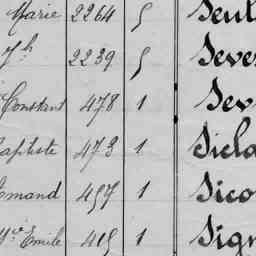 Marie 2264 5 Seul
Jh 2239 5 Seve
Constant 478 1 Sev
Baptiste 473 1 Sicla
Amand 457 1 Sico
Emile 415 1 Sign